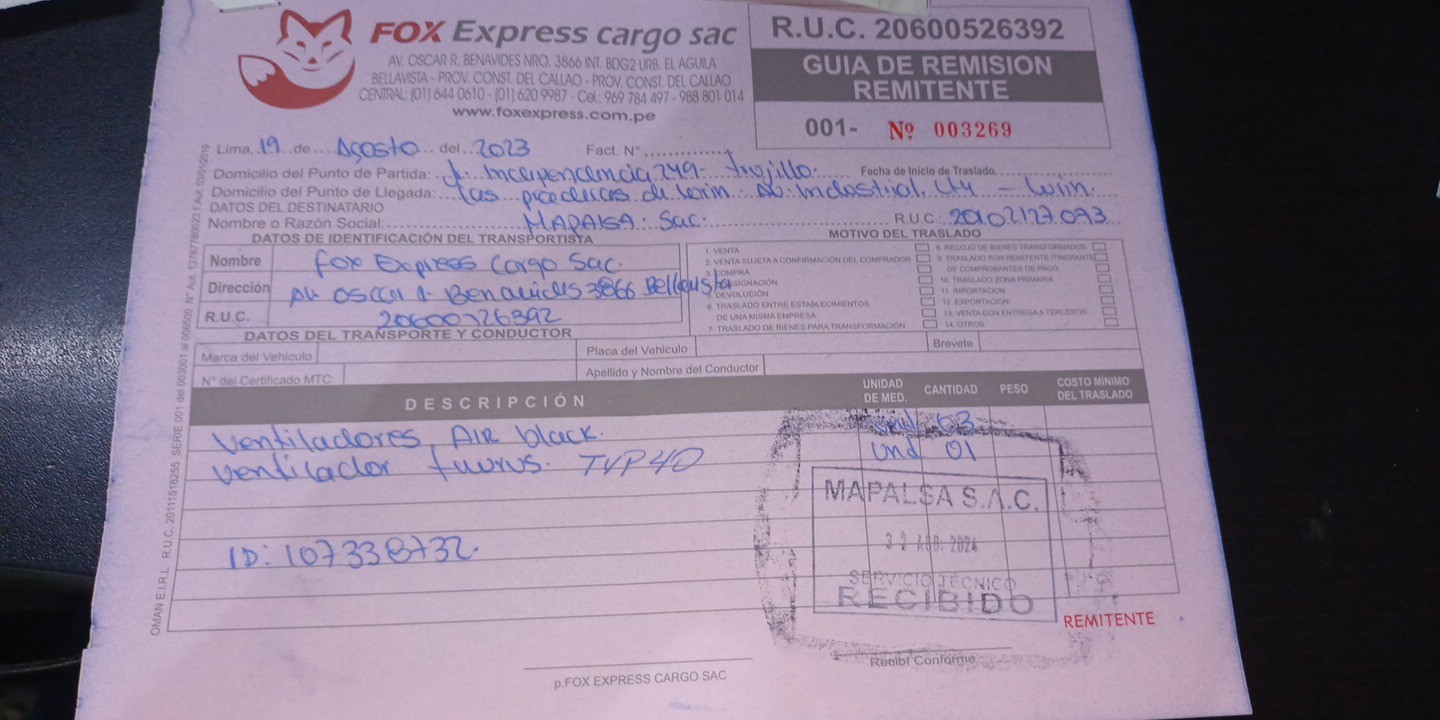 FOX Express cargo sac
AV. OSCAR R. BENAVIDES NRO. 3866 INT. BDG2 URB. EL AGUILA
BELLAVISTA - PROV. CONST. DEL CALLAO - PROV. CONST. DEL CALLAO
CENTRAL: (01) 644 0610 - (01) 620 9987 - Cel.: 969 784 497 - 988 801 014
www.foxexpress.com.pe
R.U.C. 20600526392
GUIA DE REMISION
REMITENTE
001- Nº 003269
Lima, 19 de Agosto del 2023 Fact. N°
Domicilio del Punto de Partida: Jr. Independencia 249 - Trujillo. Fecha de Inicio de Traslado.
Domicilio del Punto de Llegada: Las praderas de Lurin Av. Industrial - Lurin.
DATOS DEL DESTINATARIO
Nombre o Razón Social: MAPALSA Sac. R.U.C. 20102127073
DATOS DE IDENTIFICACIÓN DEL TRANSPORTISTA
Nombre Fox Express Cargo Sac.
Dirección Av. Oscar R. Benavides 3866 Bellavista
R.U.C. 20600526392
MOTIVO DEL TRASLADO
1. VENTA
2. VENTA SUJETA A CONFIRMACIÓN DEL COMPRADOR
3. COMPRA
DEVOLUCIÓN
6. TRASLADO ENTRE ESTABLECIMIENTOS
DE UNA MISMA EMPRESA
7. TRASLADO DE BIENES PARA TRANSFORMACIÓN
8. RECOJO DE BIENES TRANSFORMADOS
9. TRASLADO POR REMITENTE ITINERANTE
DE COMPROBANTES DE PAGO
10. TRASLADO ZONA PRIMARIA
11. IMPORTACION
12. EXPORTACIÓN
13. VENTA CON ENTREGA A TERCEROS
14. OTROS
DATOS DEL TRANSPORTE Y CONDUCTOR
Marca del Vehiculo Placa del Vehiculo Brevete
N° del Certificado MTC: Apellido y Nombre del Conductor
DESCRIPCIÓN UNIDAD DE MED. CANTIDAD PESO COSTO MÍNIMO DEL TRASLADO
Ventiladores AIR black. Und 03
Ventilador TVP40 Und 01
ID: 107338732.
MAPALSA S.A.C.
AGO. 2024
SERVICIO TECNICO
RECIBIDO
REMITENTE
p.FOX EXPRESS CARGO SAC
Recibí Conforme